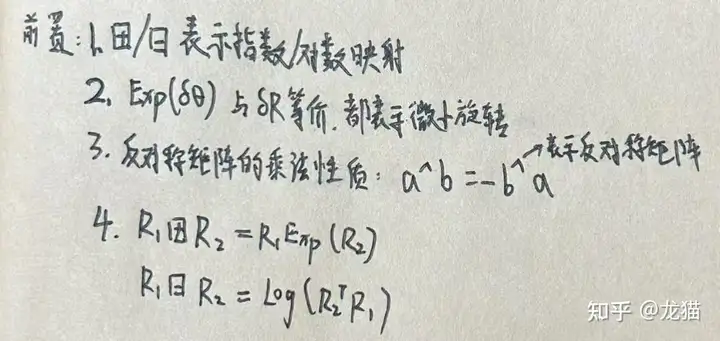 前置:1.⊞/⊟表示指数/对数映射
2. Exp(δθ)与δR等价.都表示微小旋转
3. 反对称矩阵的乘法性质: a^b=-b^a →表示反对称矩阵
4. R₁⊞R₂=R₁Exp(R₂)
R₁⊟R₂=Log(R₂ᵀR₁)
知乎 @龙猫